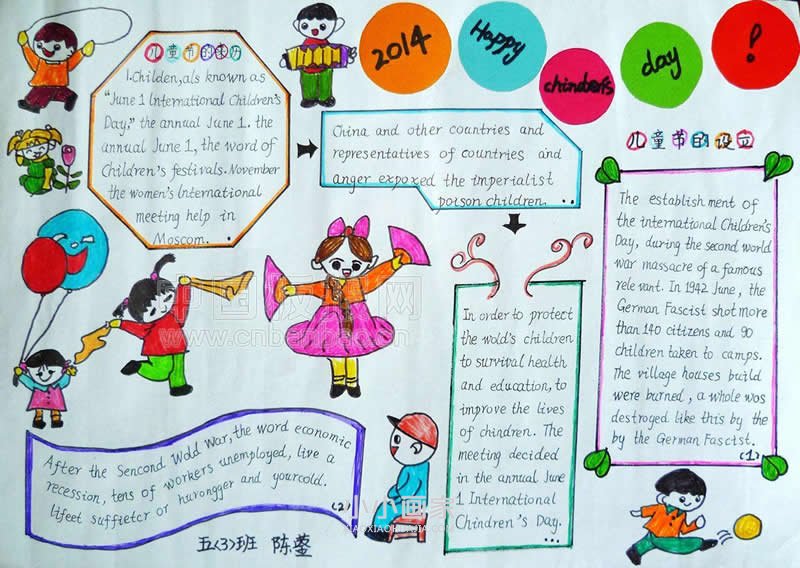 2014
Happy
chinders
day
!
儿童节的来历
1.Childen,als known as
"June 1 International Children's
Day," the annual June 1. the
annual June 1, the word of
Children's festivals. November
the women's International
meeting help in
Moscom. .
China and other countries and
representatives of countries and
anger expoxed the imperialist
poison children. ..
In order to protect
the wold's children
to survival health
and education, to
improve the lives
of chindren. The
meeting decided
in the annual June
1 International
Chindren's Day. ..
儿童节的设立
The establishment of
the international Children's
Day, during the second world
war massacre of a famous
relevant. In 1942 June, the
German Fascist shot more
than 140 citizens and 90
children taken to camps.
The village houses build
were burned, a whole wos
destroged like this by the
by the German Fascist.
(1)
After the Sencond Wold War, the word economic
recession, tens of workers unemployed, live a
lifeet suffietcr or hurongger and yourcold.
(2)
五(3)班 陈蓥
中国板报网
www.cnbanbao.cn
小小画家
XIAOXIAOHUAJIA.COM